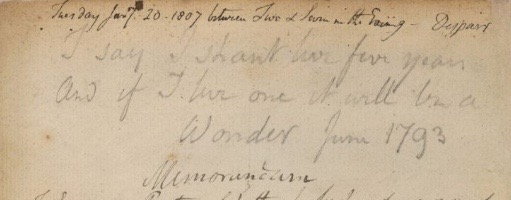 Tuesday Jan.ry 20. 1807 between Two & Seven in the Evening - Despair
I say I shant live five years
And if I live one it will be a
Wonder June 1793
Memorandum